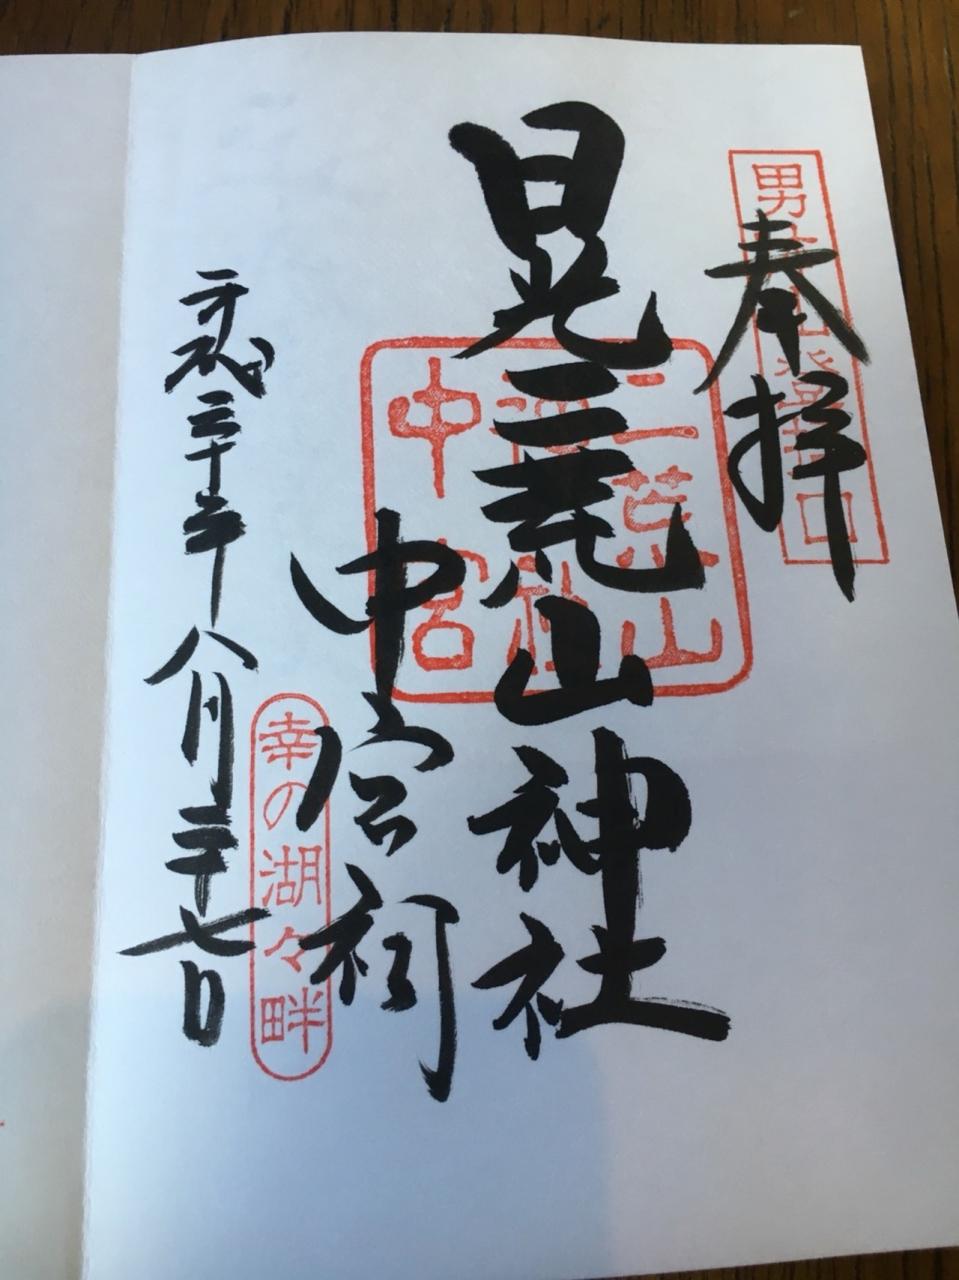 男体山登拝口
奉拝
日光二荒山神社
二荒山
神社
中宮
中宮祠
幸の湖々畔
平成三十年八月二十七日